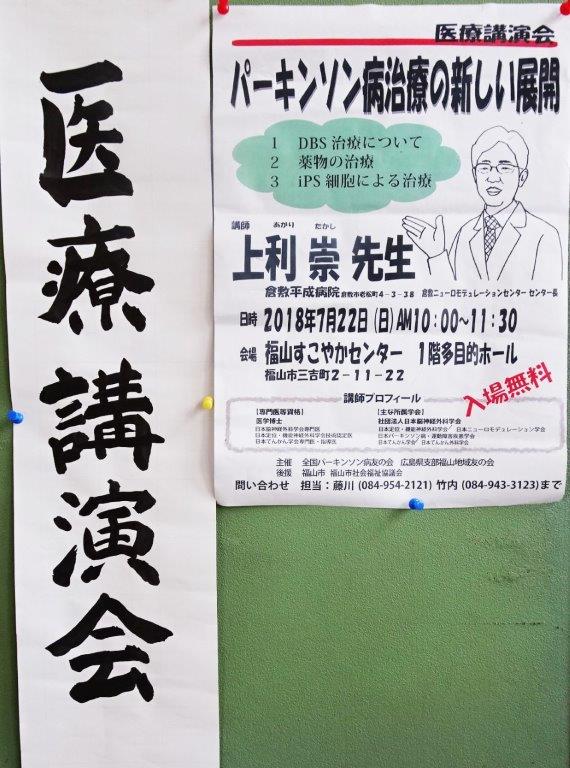 医療講演会
医療講演会
パーキンソン病治療の新しい展開
1 DBS治療について
2 薬物の治療
3 iPS細胞による治療
講師 あがり たかし
上利 崇 先生
倉敷平成病院 倉敷市老松町4-3-38 倉敷ニューロモデュレーションセンター センター長
日時 2018年7月22日(日)AM10:00~11:30
会場 福山すこやかセンター 1階多目的ホール
福山市三吉町2-11-22
入場無料
講師プロフィール
【専門医等資格】
医学博士
日本脳神経外科学会専門医
日本定位・機能神経外科学会技術認定医
日本てんかん学会専門医・指導医
【主な所属学会】
社団法人日本脳神経外科学会
日本定位・機能神経外科学会 日本ニューロモデュレーション学会
日本パーキンソン病・運動障害疾患学会
日本てんかん学会 日本てんかん外科学会
主催 全国パーキンソン病友の会 広島県支部福山地域友の会
後援 福山市 福山市社会福祉協議会
問い合わせ 担当:藤川(084-954-2121) 竹内(084-943-3123)まで